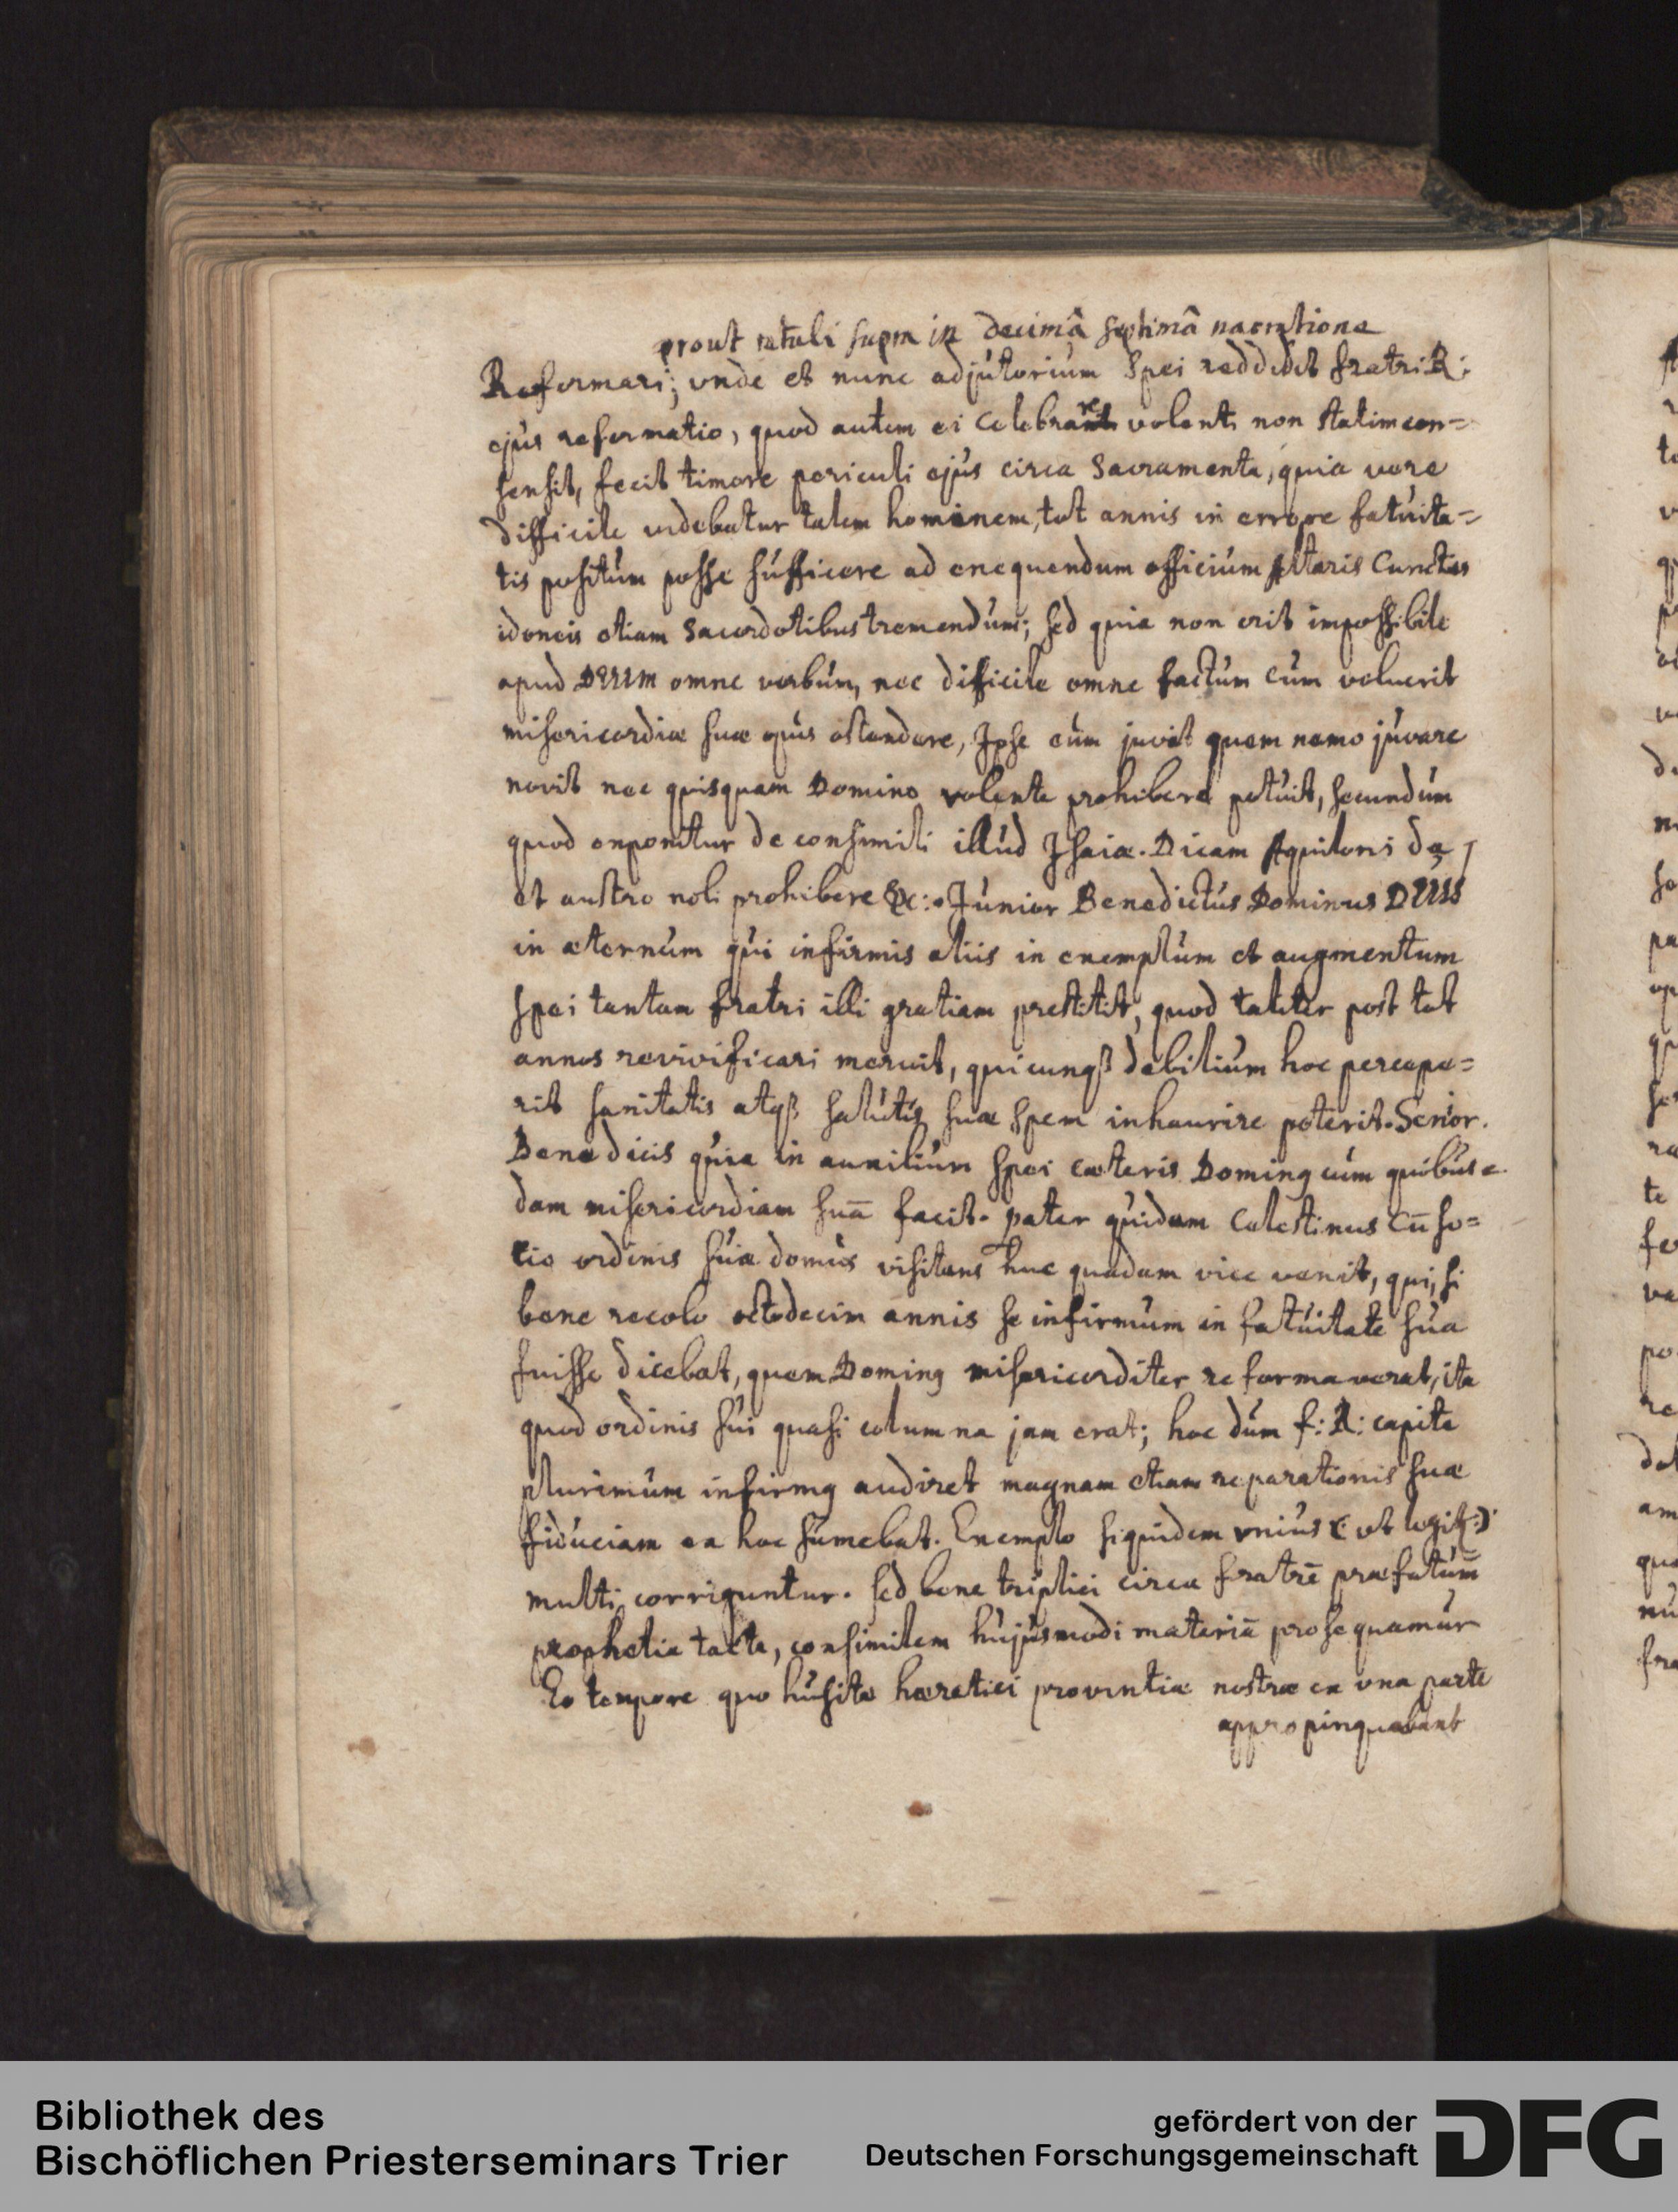 prout retuli supra in decimâ septimâ narratione
Reformari; vnde et nunc adjutorium spei reddidit fratri R:
ejus reformatio, quod autem ei celebrare volenti non statim con=
sensit, fecit timore periculi ejus circa Sacramenta, quia vere
difficile videbatur talem hominem, tot annis in errore fatuita=
tis positum posse sufficere ad exequendum officium altaris Cunctis
idoneis etiam Sacerdotibus tremendum; sed quia non erit impossibile
apud DEUM omne verbum, nec difficile omne factum cum voluerit
misericordiæ suæ opus ostendere, Ipse eum juvit quem nemo juvare
novit nec quisquam Domino volente prohibere potuit, secundum
quod exponitur de consimili illud Isaiæ. Dicam Aquiloni da
et austro noli prohibere &c: Junior Benedictus Dominus DEUS
in æternum qui infirmis aliis in exemplum et augmentum
spei tantam fratri illi gratiam prestitit, quod taliter post tot
annos revivificari meruit, quicunqß debilium hoc percepe=
rit sanitatis atqß salutis suæ spem inhaurire poterit. Senior.
Benedicis quia in auxilium spei cæteris Dominꝰ cum quibus=
dam misericordiam suā facit. pater quidam Cælestinus cū so=
cio ordinis suæ domus visitans huc quadam vice venit, qui, si
bene recolo octodecim annis se infirmum in fatuitate sua
fuisse dicebat, quem Dominꝰ misericorditer reformaverat, ita
quod ordinis sui quasi columna jam erat; hoc dum f: R: capite
plurimum infirmꝰ audiret magnam etiam reparationis suæ
fiduciam ex hoc sumebat. Exemplo siquidem vnius (: ut legit:)
multi corriguntur. sed bene triplici circa fratrē præfatum̄
prophetia tacta, consimilem hujusmodi materiā prosequamur
Eo tempore quo husitæ hæretici provintiæ nostræ ex vna parte
appropinquabant
Bibliothek des
Bischöflichen Priesterseminars Trier
gefördert von der
Deutschen Forschungsgemeinschaft
DFG